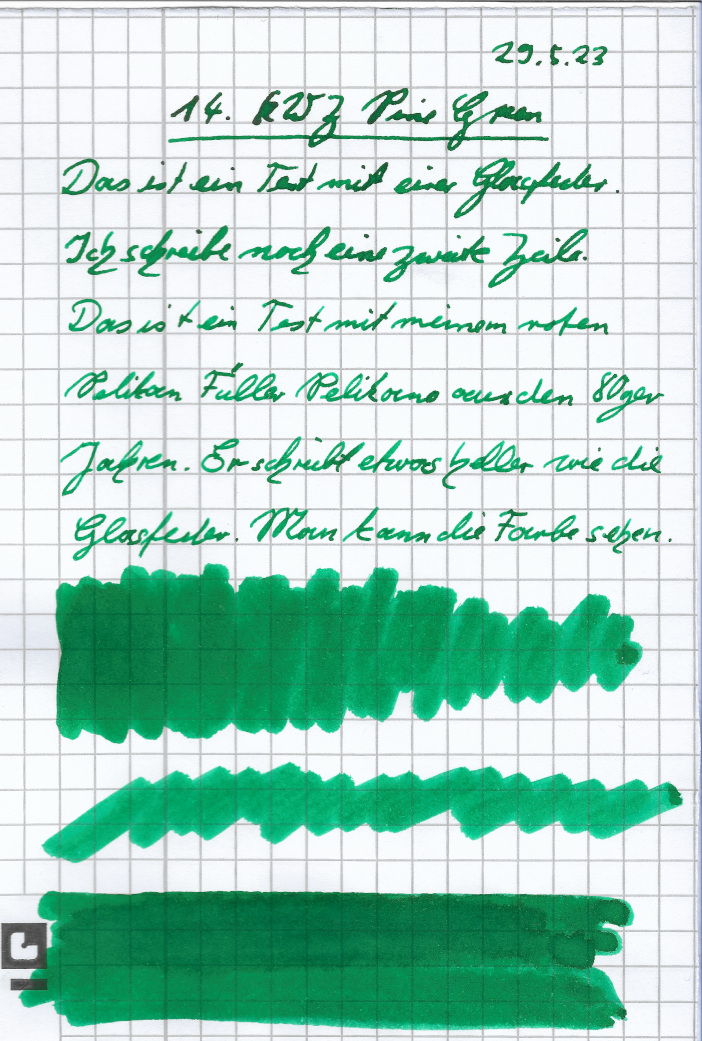 29.5.23
14. KWZ Pine Green
Das ist ein Test mit einer Glasfeder.
Ich schreibe noch eine zweite Zeile.
Das ist ein Test mit meinem roten
Pelikan Füller Pelikano aus den 80ger
Jahren. Er schreibt etwas heller wie die
Glasfeder. Man kann die Farbe sehen.